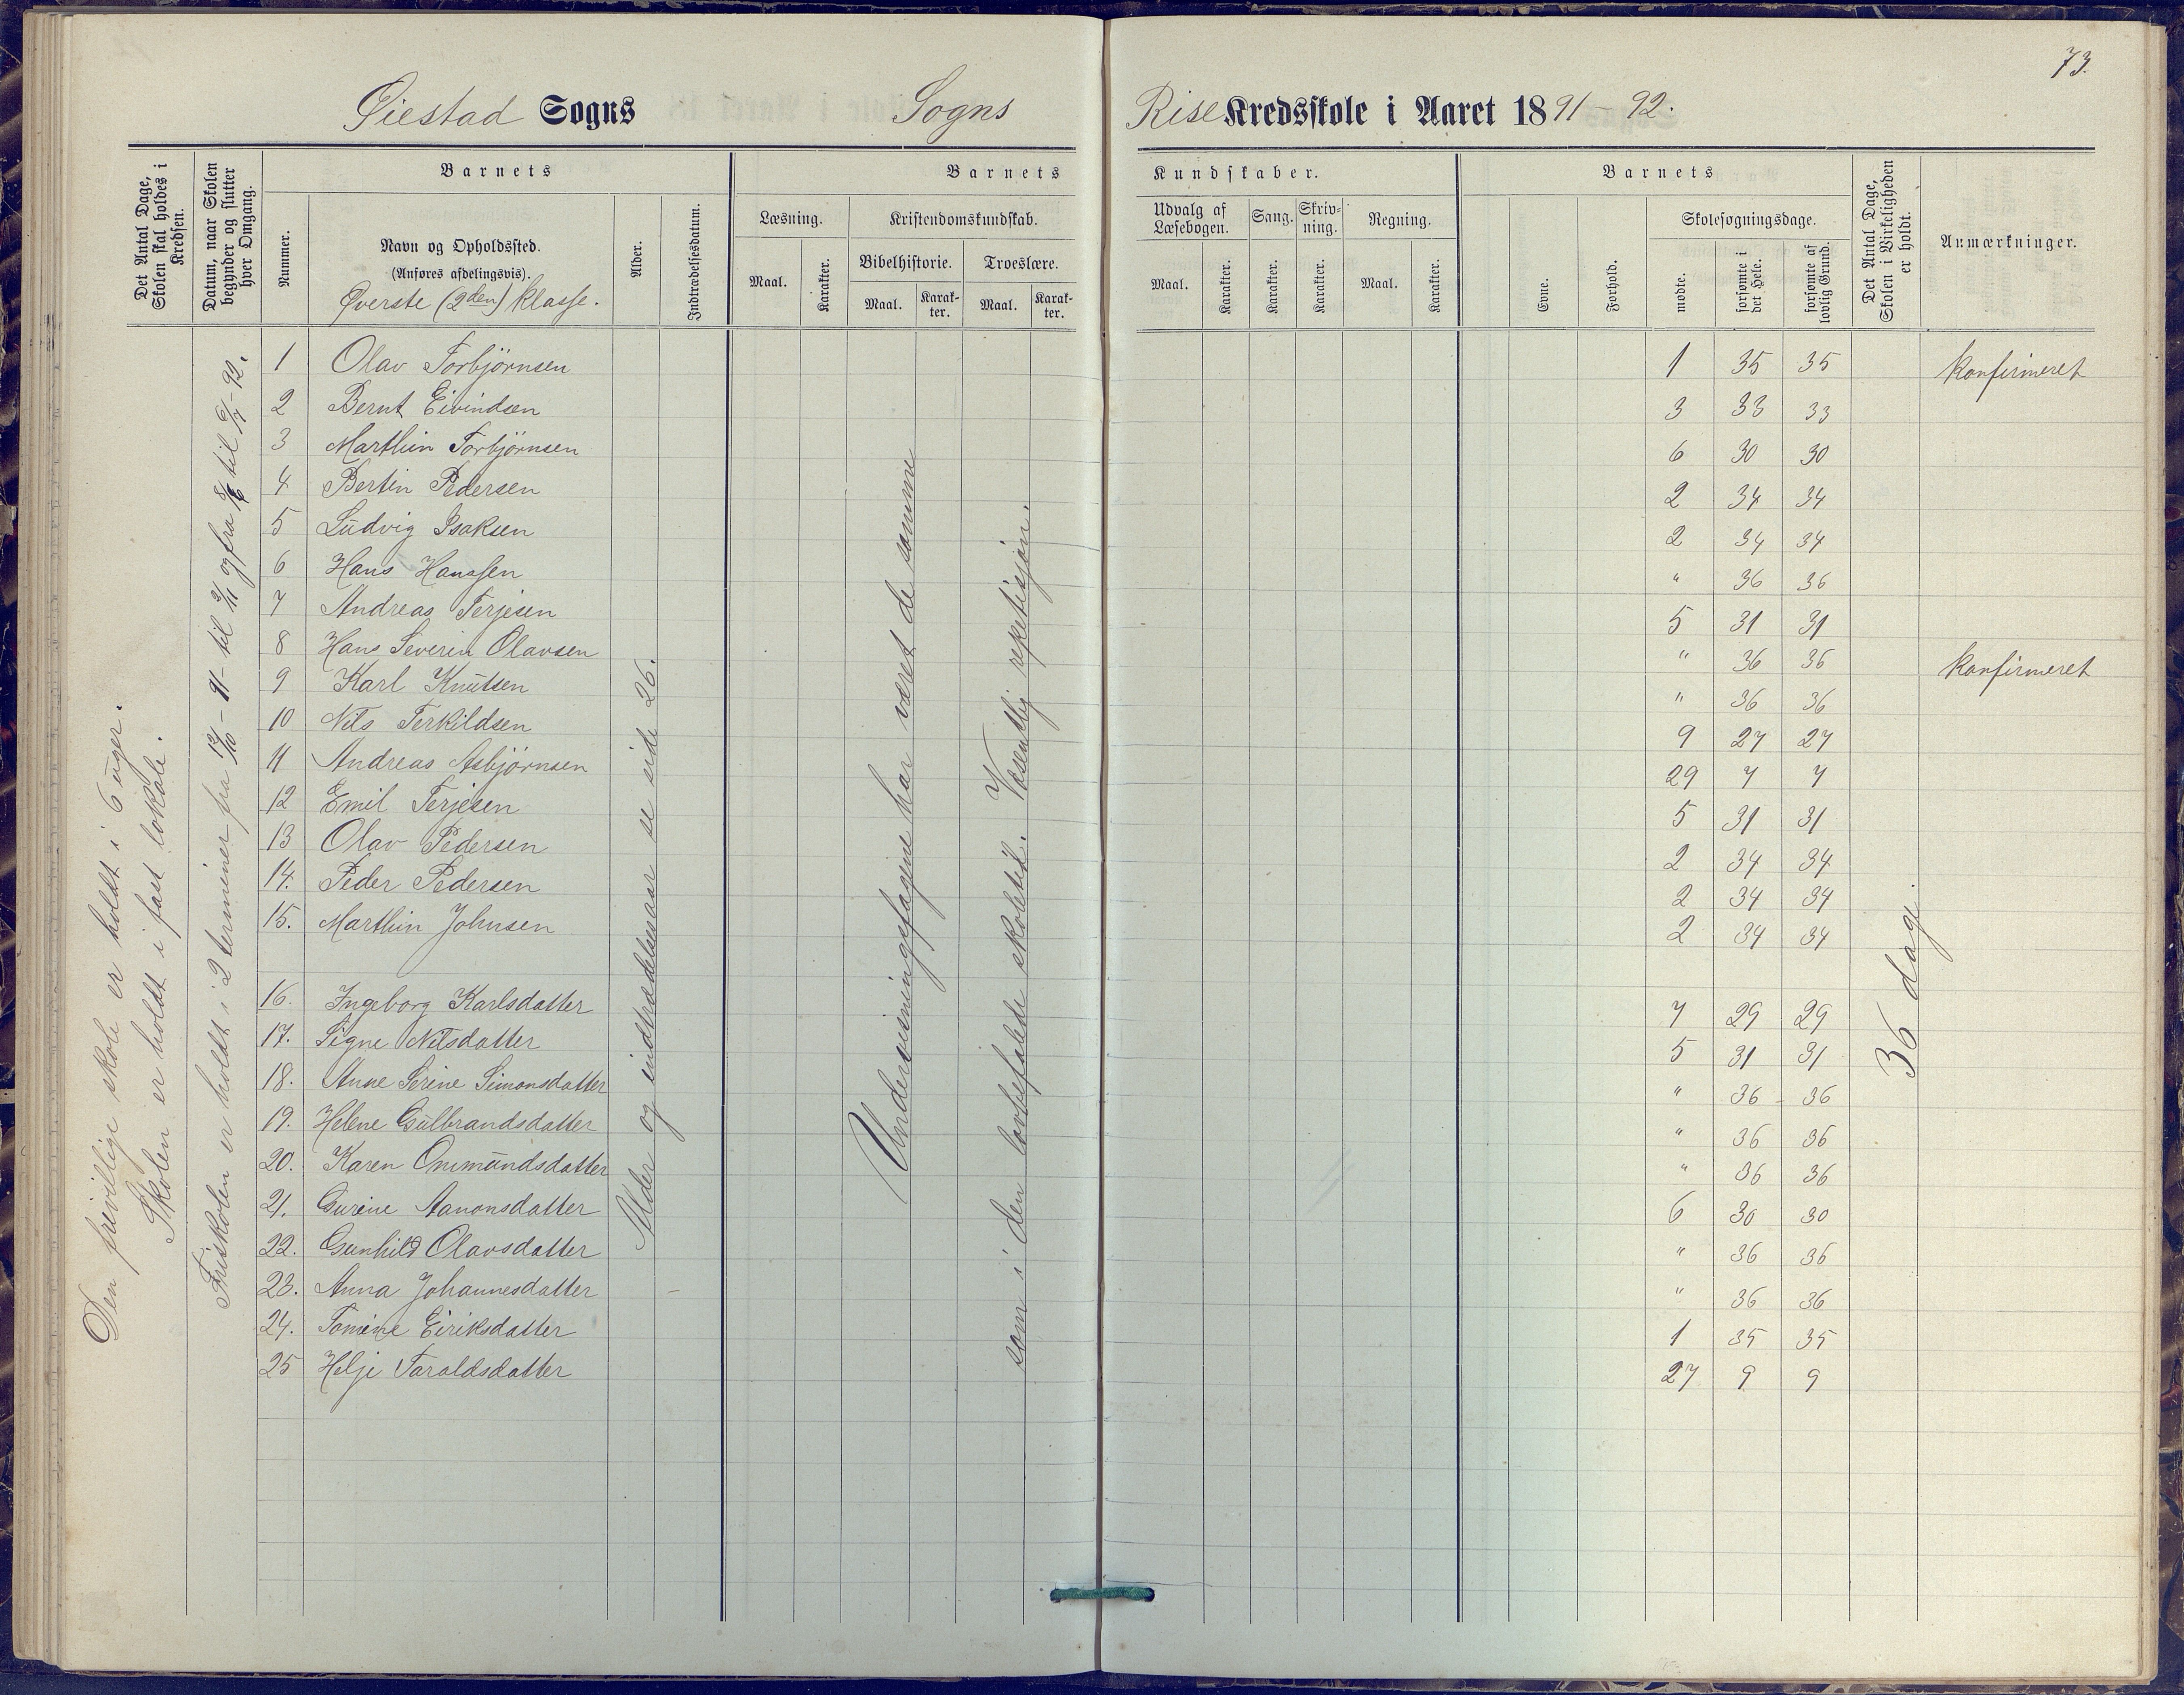 73.
Øiestad Sogns Sogns Rise Kredsskole i Aaret 1891-92.
Det Antal Dage, Skolen skal holdes i Kredsen.
Datum, naar Skolen begynder og slutter hver Omgang.
Barnets
Nummer.
Navn og Opholdssted.
(Anføres afdelingsvis).
Øverste (2den) klasse.
Alder.
Indtrædelsesdatum.
Barnets Kundskaber.
Læsning.
Maal.
Karakter.
Kristendomskundskab.
Bibelhistorie.
Maal.
Karakter.
Troeslære.
Maal.
Karakter.
Udvalg af Læsebogen.
Maal.
Karakter.
Sang.
Karakter.
Skrivning.
Karakter.
Regning.
Maal.
Karakter.
Barnets
Evne.
Forhold.
Skolesøgningsdage.
mødte.
forsømte i det Hele.
forsømte af lovlig Grund.
Det Antal Dage, Skolen i Virkeligheden er holdt.
Anmærkninger.
Den frivillige skole er holdt i 6 uger.
Skolen er holdt i fast lokale.
Friskolen er holdt i 2 terminer fra 12/10 - 91 - til 3/11 og fra 8/6 til 2/7 - 92.
1 Olav Torbjörnsen 1 35 35 konfirmeret
2 Bernt Eivindsen 3 33 33
3 Marthin Torbjörnsen 6 30 30
4 Bertin Pedersen 2 34 34
5 Ludvig Isaksen 2 34 34
6 Hans Hanssen " 36 36
7 Andreas Terjesen 5 31 31
8 Hans Severin Olavsen " 36 36 konfirmeret
9 Karl Knutsen " 36 36
10 Nils Terkildsen 9 27 27
11 Andreas Asbjörnsen 29 7 7
12 Emil Terjesen 5 31 31
13 Olav Pedersen 2 34 34
14. Peder Pedersen 2 34 34
15. Marthin Johnsen 2 34 34
16. Ingeborg Karlsdatter 7 29 29
17. Signe Nilsdatter 5 31 31
18. Anne Serine Simonsdatter " 36 - 36
19. Helene Gulbrandsdatter " 36 36
20. Karen Ommundsdatter " 36 36
21. Gurine Aanonsdatter 6 30 30
22. Gunhild Olavsdatter " 36 36
23. Anna Johannesdatter - " 36 36
24. Tomine Eiriksdatter 1 35 35
25 Helje Taraldsdatter 27 9 9
Alder og indtrædelsesaar se side 26.
Undervisningsfagene har været de samme
som i den lovbefalede skoletid. Væsentlig repetisjon.
36 dage.